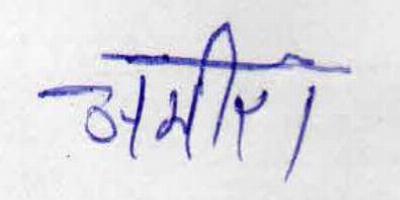 अमीरा